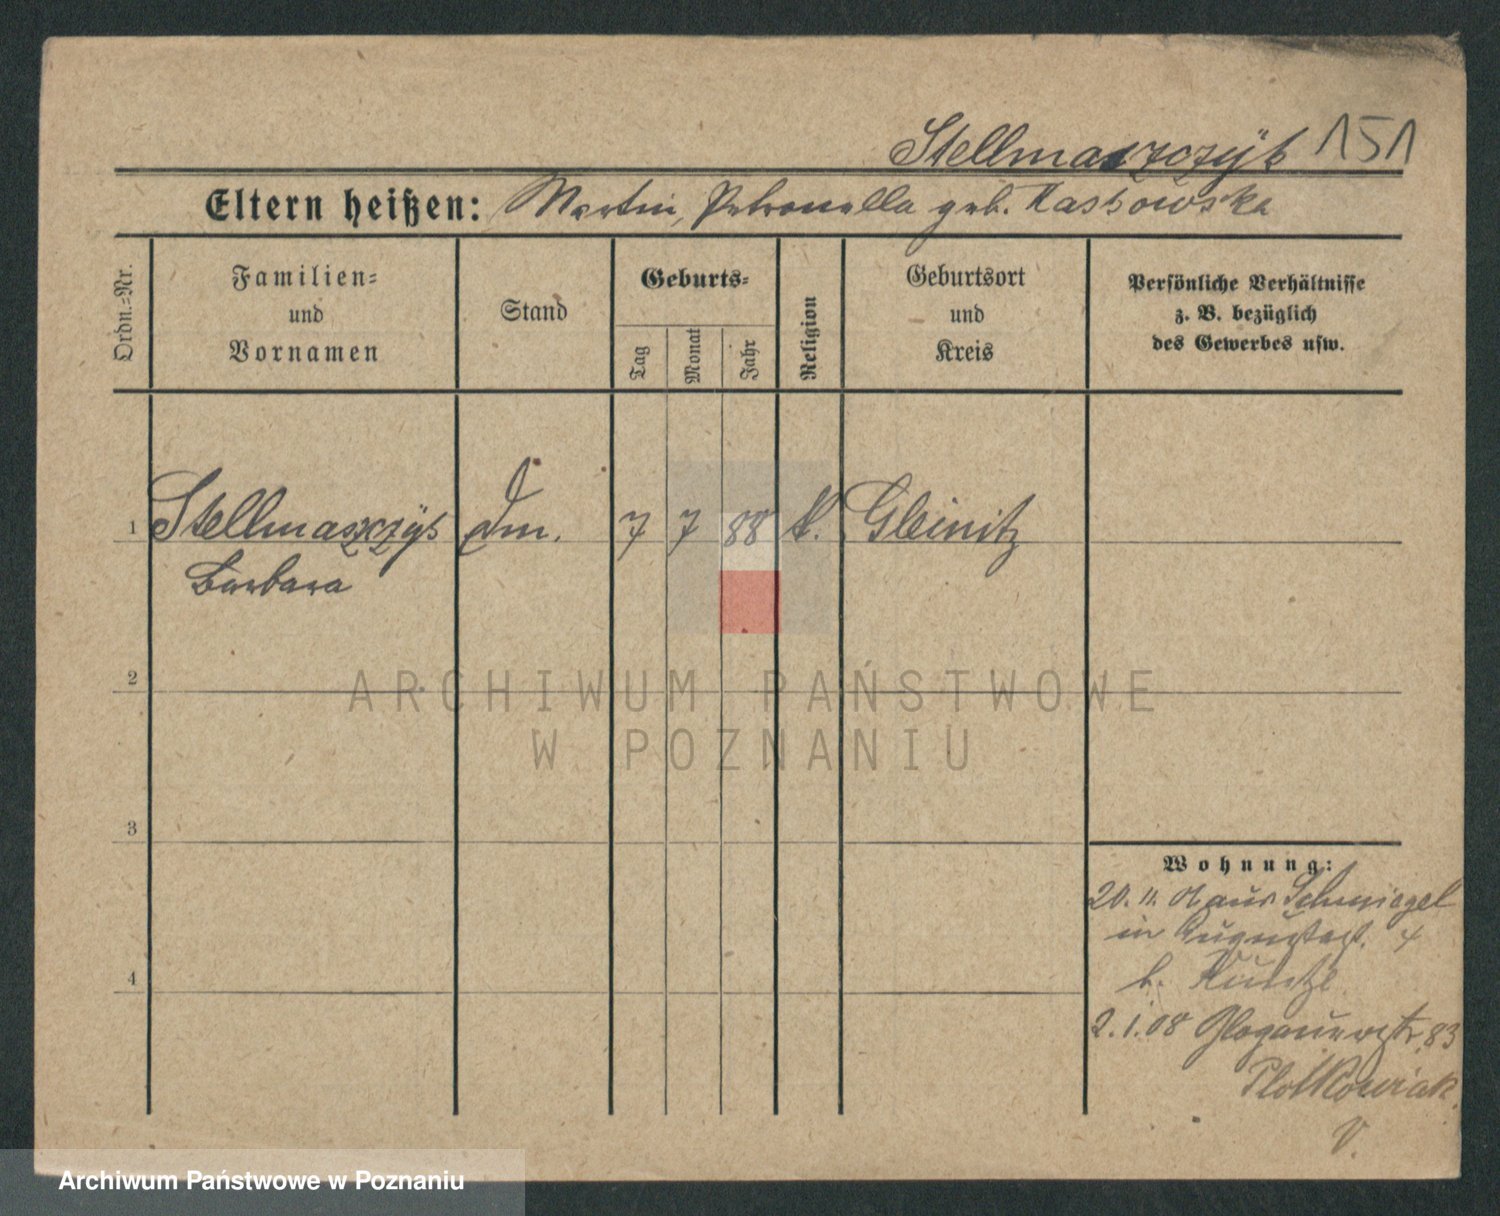 Stellmaszczÿk 151
Eltern heißen: Martin, Petronella geb. Kassowska
Ordn.=Nr.
Familien=
und
Vornamen
Stand
Geburts=
Tag
Monat
Jahr
Religion
Geburtsort
und
Kreis
Persönliche Verhältnisse
z. B. bezüglich
des Gewerbes usw.
1 Stellmaszczÿk Dm. 7 7 88 k. Gleinitz
Barbara
2
ARCHIWUM PAŃSTWOWE
W POZNANIU
3
4
Wohnung:
20. 11. aus Schmiegel
in Augustast. 4
b. Kuntze
2.1.08 Glogauerstr. 83
Plotkowiak
V.
Archiwum Państwowe w Poznaniu